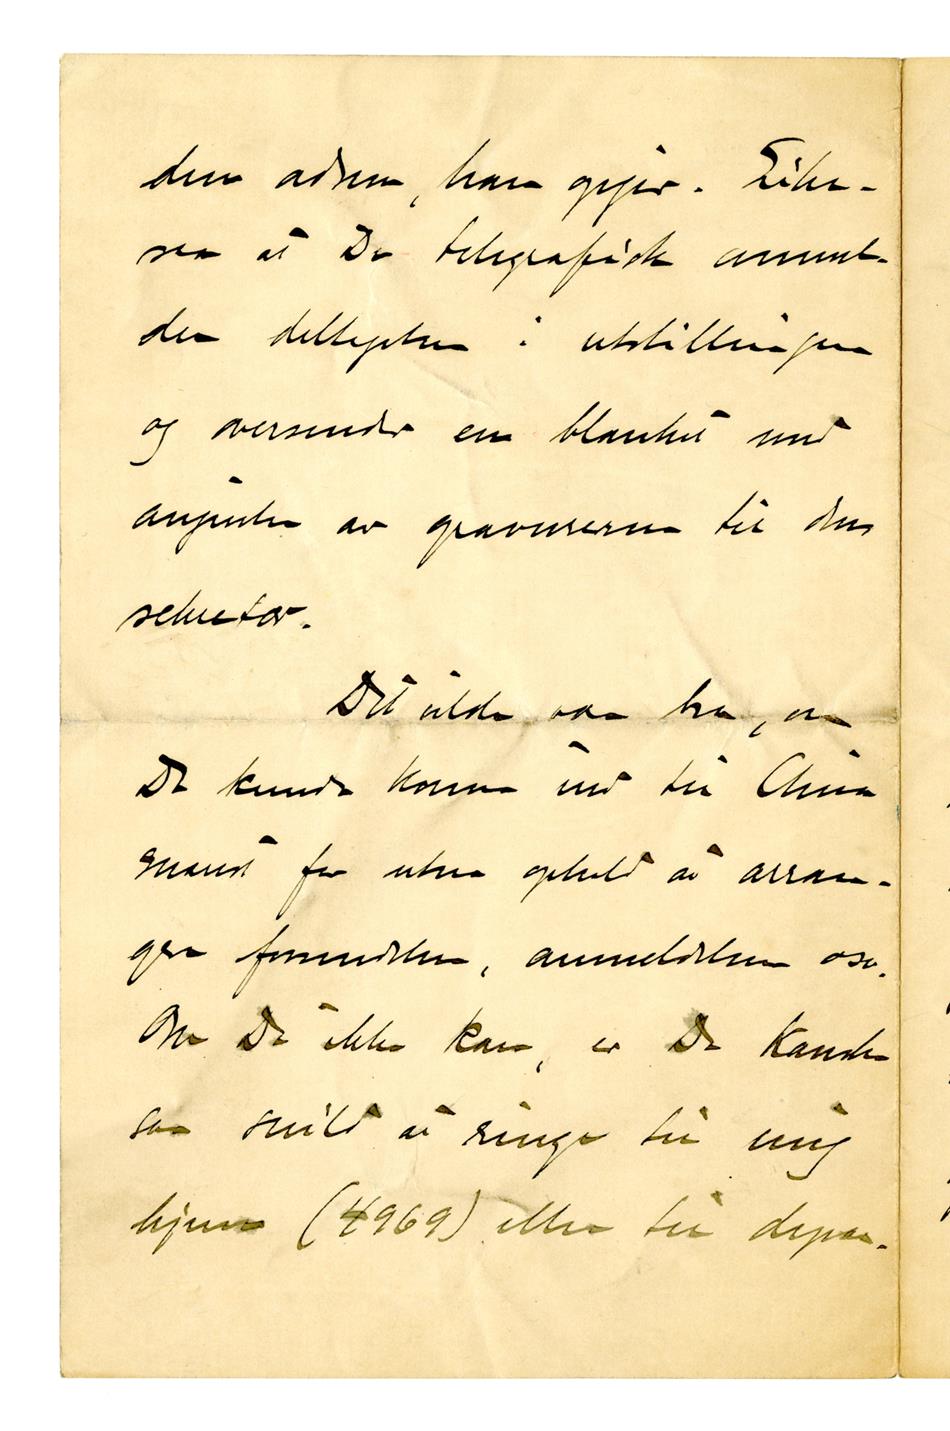 den adresse, han opgir. Like-
saa at De telegrafisk anmel-
der deltagelsen i utstillingen
og oversender en blanket med
angivelse av gravurerne til dens
sekretær.
Det vilde være bra, om
De kunde komme ind til
snarest for uten ophold at arran-
gere forsendelsen, anmeldelsen osv.
Om De ikke kan, er De kanske
saa snild at ringe til mig
hjem (4969) eller til depar-